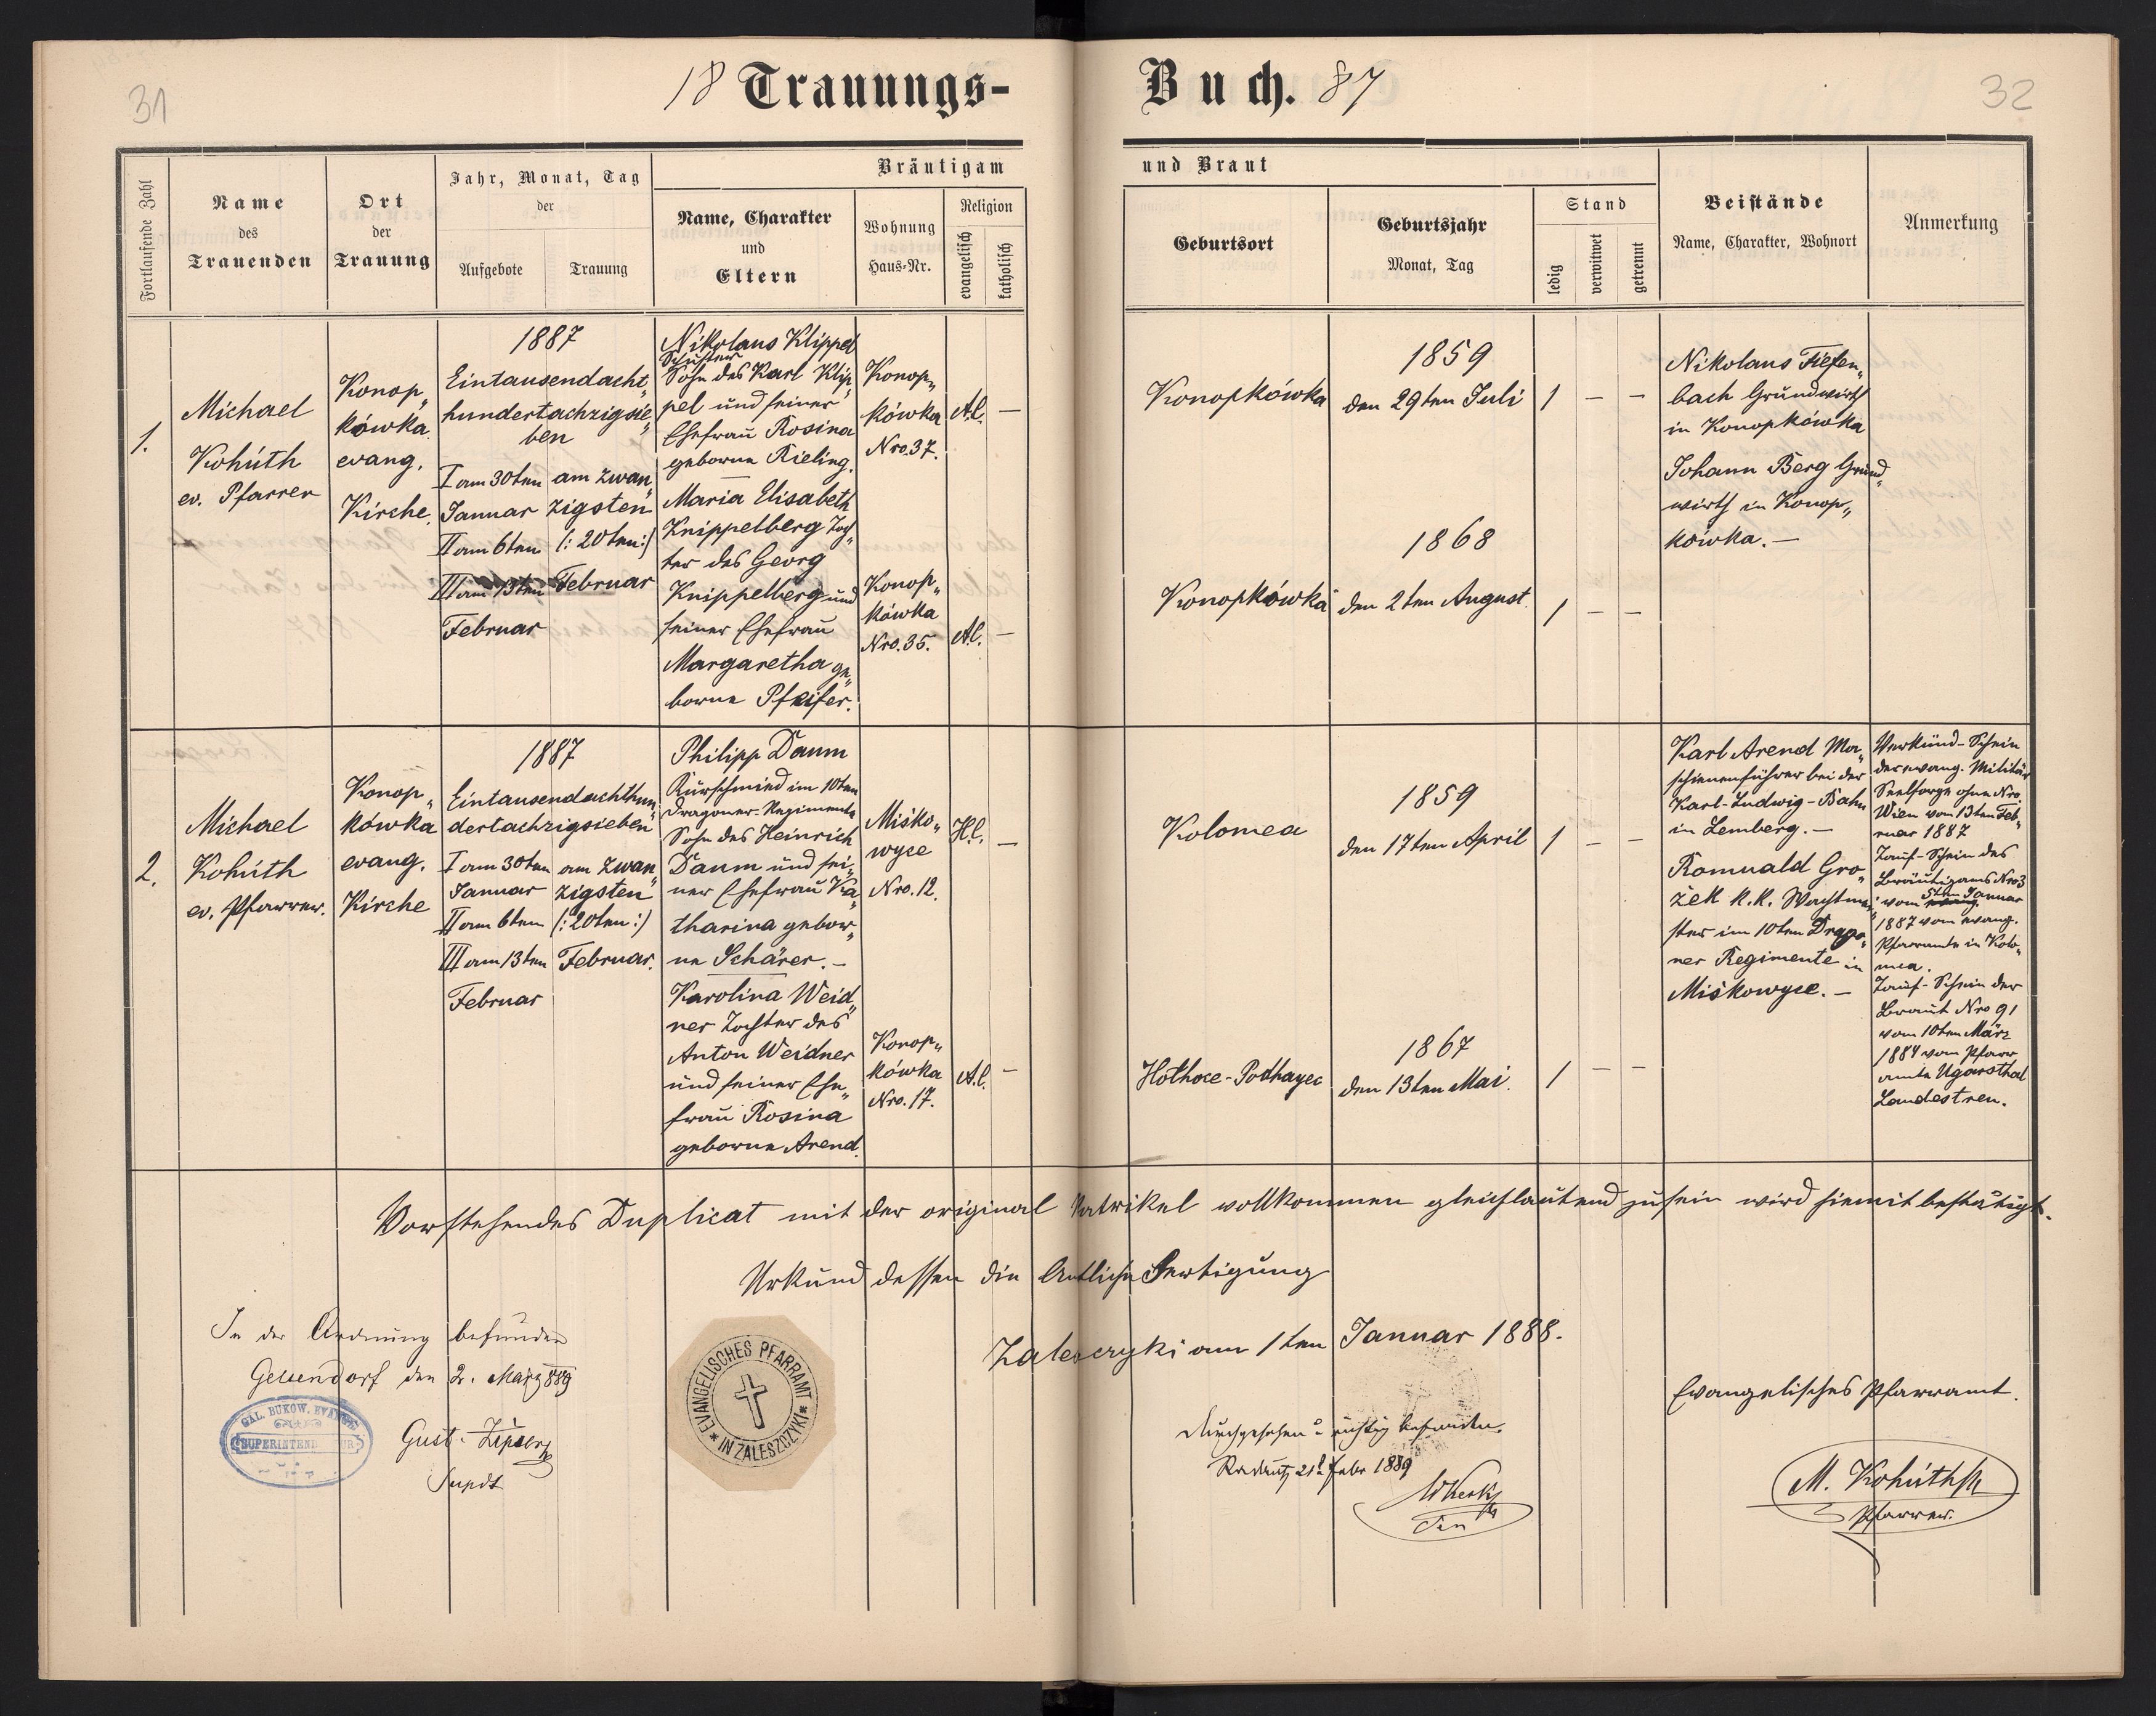 31
18 Trauungs-
Buch. 87
32
Fortlaufende Zahl
Name
des
Trauenden
Ort
der
Trauung
Jahr, Monat, Tag
der
Aufgebote
Trauung
Bräutigam
Name, Charakter
und
Eltern
Wohnung
Haus-Nr.
Religion
evangelisch
katholisch
und Braut
Geburtsort
Geburtsjahr
Monat, Tag
Stand
ledig
verwitwet
getrennt
Beistände
Name, Charakter, Wohnort
Anmerkung
1.
Michael
Kohúth
ev. Pfarrer
Konop„
kówka.
evang.
Kirche.
1887
Eintausendacht„
hundertachzigsie„
ben
I am 30ten
Januar
II am 6ten
III am 13ten
Februar
am zwan„
zigsten
(: 20ten :)
Februar
Nikolaus Klippel
Schuster
Sohn des Karl Klip„
pel und seiner
Ehefrau Rosina
geborne Rieling.
Maria Elisabeth
Knippelberg Toch„
ter des Georg
Knippelberg und
seiner Ehefrau
Margaretha ge„
borne Pfeifer.
Konop„
kówka
Nro. 37.
Konop„
kówka
Nro. 35.
A.C. —
A.C. —
Konopkówka
1859
den 29ten Juli
1 — —
Konopkówka
1868
den 2ten August.
1 — —
Nikolaus Tiefen„
bach Grundwirth
in Konopkówka
Johann Berg Grund„
wirth in Konop„
kówka. —
2.
Michael
Kohúth
ev. Pfarrer.
Konop„
kówka
evang.
Kirche
1887
Eintausendachthun„
dertachzigsieben
I am 30ten
Januar
II am 6ten
III am 13ten
Februar
am zwan„
zigsten
(: 20ten :)
Februar.
Philipp Daum
Kurschmied im 10ten
Dragoner-Regimente
Sohn des Heinrich
Daum und sei„
ner Ehefrau Ka„
tharina gebor„
ne Schärer. —
Karolina Weid„
ner Tochter des
Anton Weidner
und seiner Ehe„
frau Rosina
geborne Arend.
Miśko„
wyce
Nro. 12.
Konop„
kówka
Nro. 17.
H.C. —
A.C. —
Kolomea
1859
den 17ten April
1 — —
Hołhoce-Podhayec
1867
den 13ten Mai.
1 — —
Karl Arend Ma„
schienenführer bei der
Karl-Ludwig-Bahn
in Lemberg. —
Romuald Gro„
żek k.k. Wachtmei„
ster im 10ten Drago„
ner Regimente in
Miśkowyce. —
Verkünd-Schein
der evang. Militär
Seelsorge ohne Nro.
Wien vom 13ten Feb„
ruar 1887
Tauf-Schein des
Bräutigams Nro 3
vom 5ten Januar
1887 vom evang.
Pfarramte in Kolo„
mea.
Tauf-Schein der
Braut Nro 91
vom 10ten März
1884 vom Pfarr
amte Ugarsthal
Landestreu.
Vorstehendes Duplicat mit der original Matrikel vollkommen gleichlautend zu sein wird hiemit bestätigt.
Urkund dessen die Amtliche Fertigung
Zaleszczyki am 1ten Januar 1888.
In der Ordnung befunden
Gelsendorf den 2. März 889
Gust. Zipser
Supdt
GAL. BUKOW. EVANG.
SUPERINTENDENTUR
EVANGELISCHES PFARRAMT
IN ZALESZCZYKI
Durchgesehen u. richtig befunden.
Radautz 21. Febr 1889
Sen
Evangelisches Pfarramt.
M. Kohúth
Pfarrer.